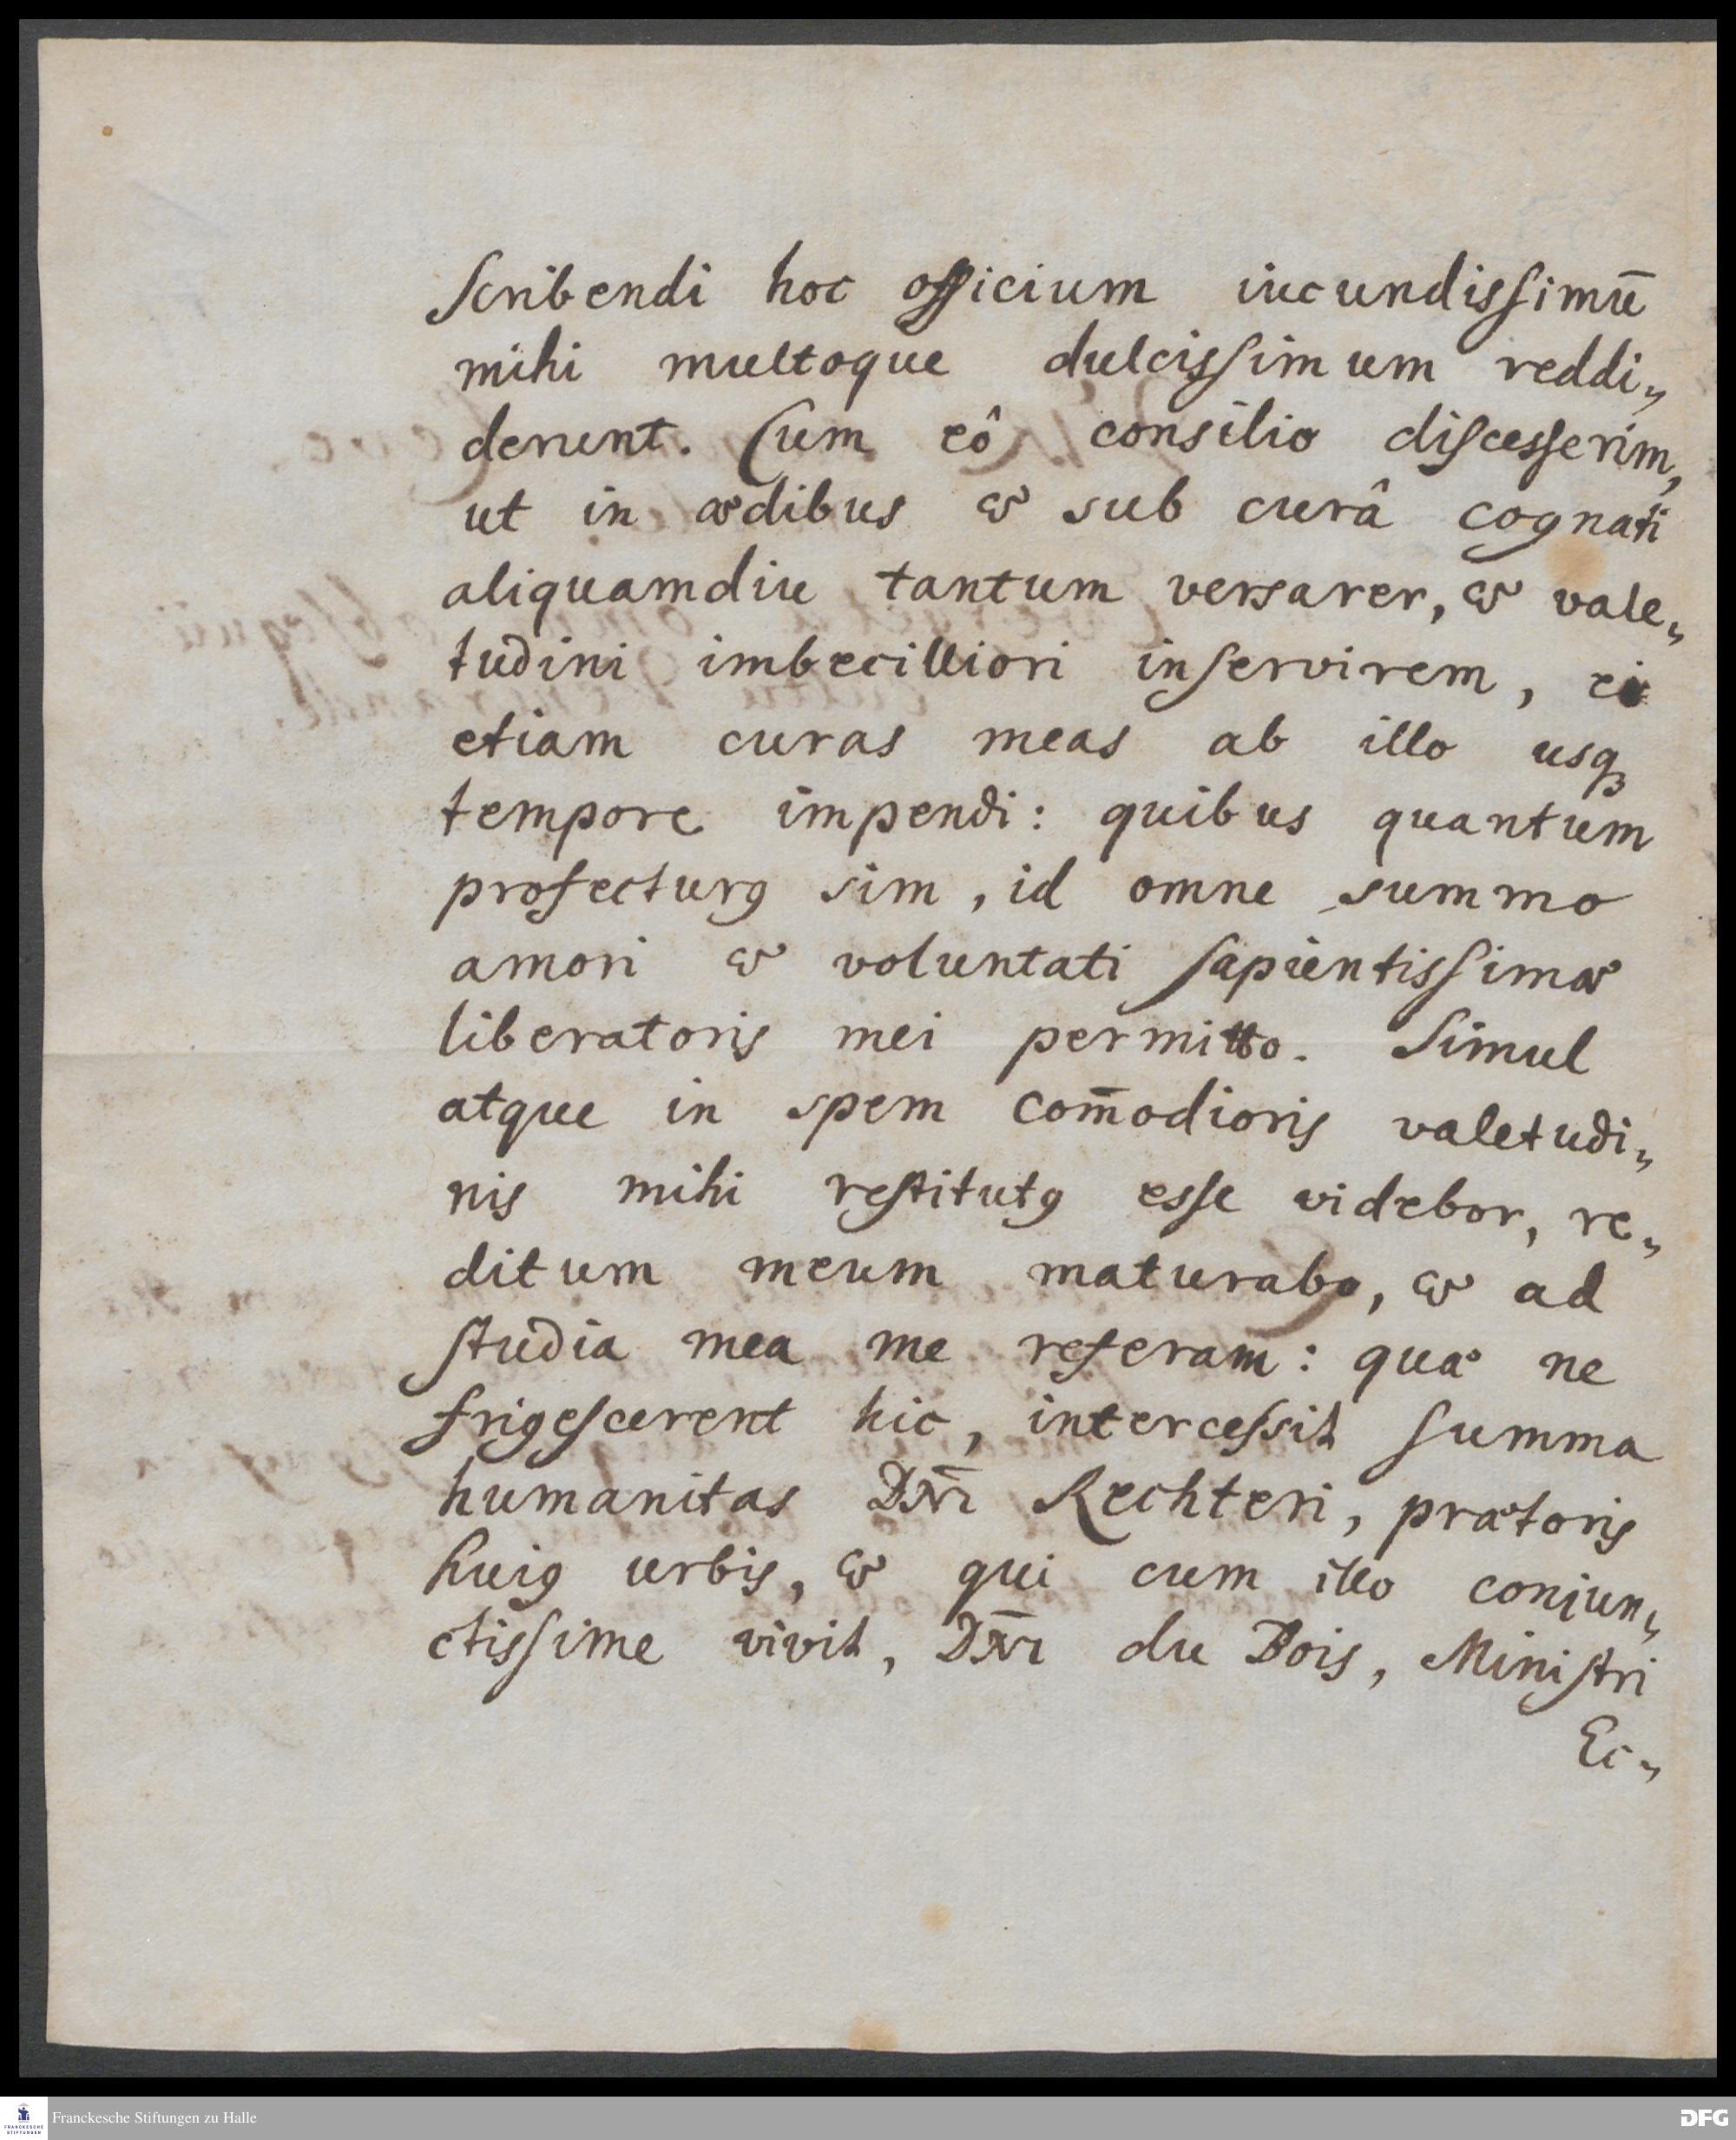 Scribendi hoc officium iucundissimū
mihi multoque dulcissimum reddi„
derunt. Cum eô consilio discesserim,
ut in ædibus & sub curâ cognati
aliquamdiu tantum versarer, & vale„
tudini imbecilliori inservirem, ei
etiam curas meas ab illo usqꝫ
tempore impendi: quibus quantum
profecturꝰ sim, id omne summo
amori & voluntati sapientissimæ
liberatoris mei permitto. Simul
atque in spem com̄odioris valetudi„
nis mihi restitutꝰ esse videbor, re„
ditum meum maturabo, & ad
studia mea me referam: quæ ne
frigescerent hic, intercessit summa
humanitas DN̄i Rechteri, prætoris
huiꝰ urbis, & qui cum illo coniun„
ctissime vivit, DN̄i du Bois, Ministri
Ec„
Franckesche Stiftungen zu Halle
FRANCKESCHE
STIFTUNGEN
DFG